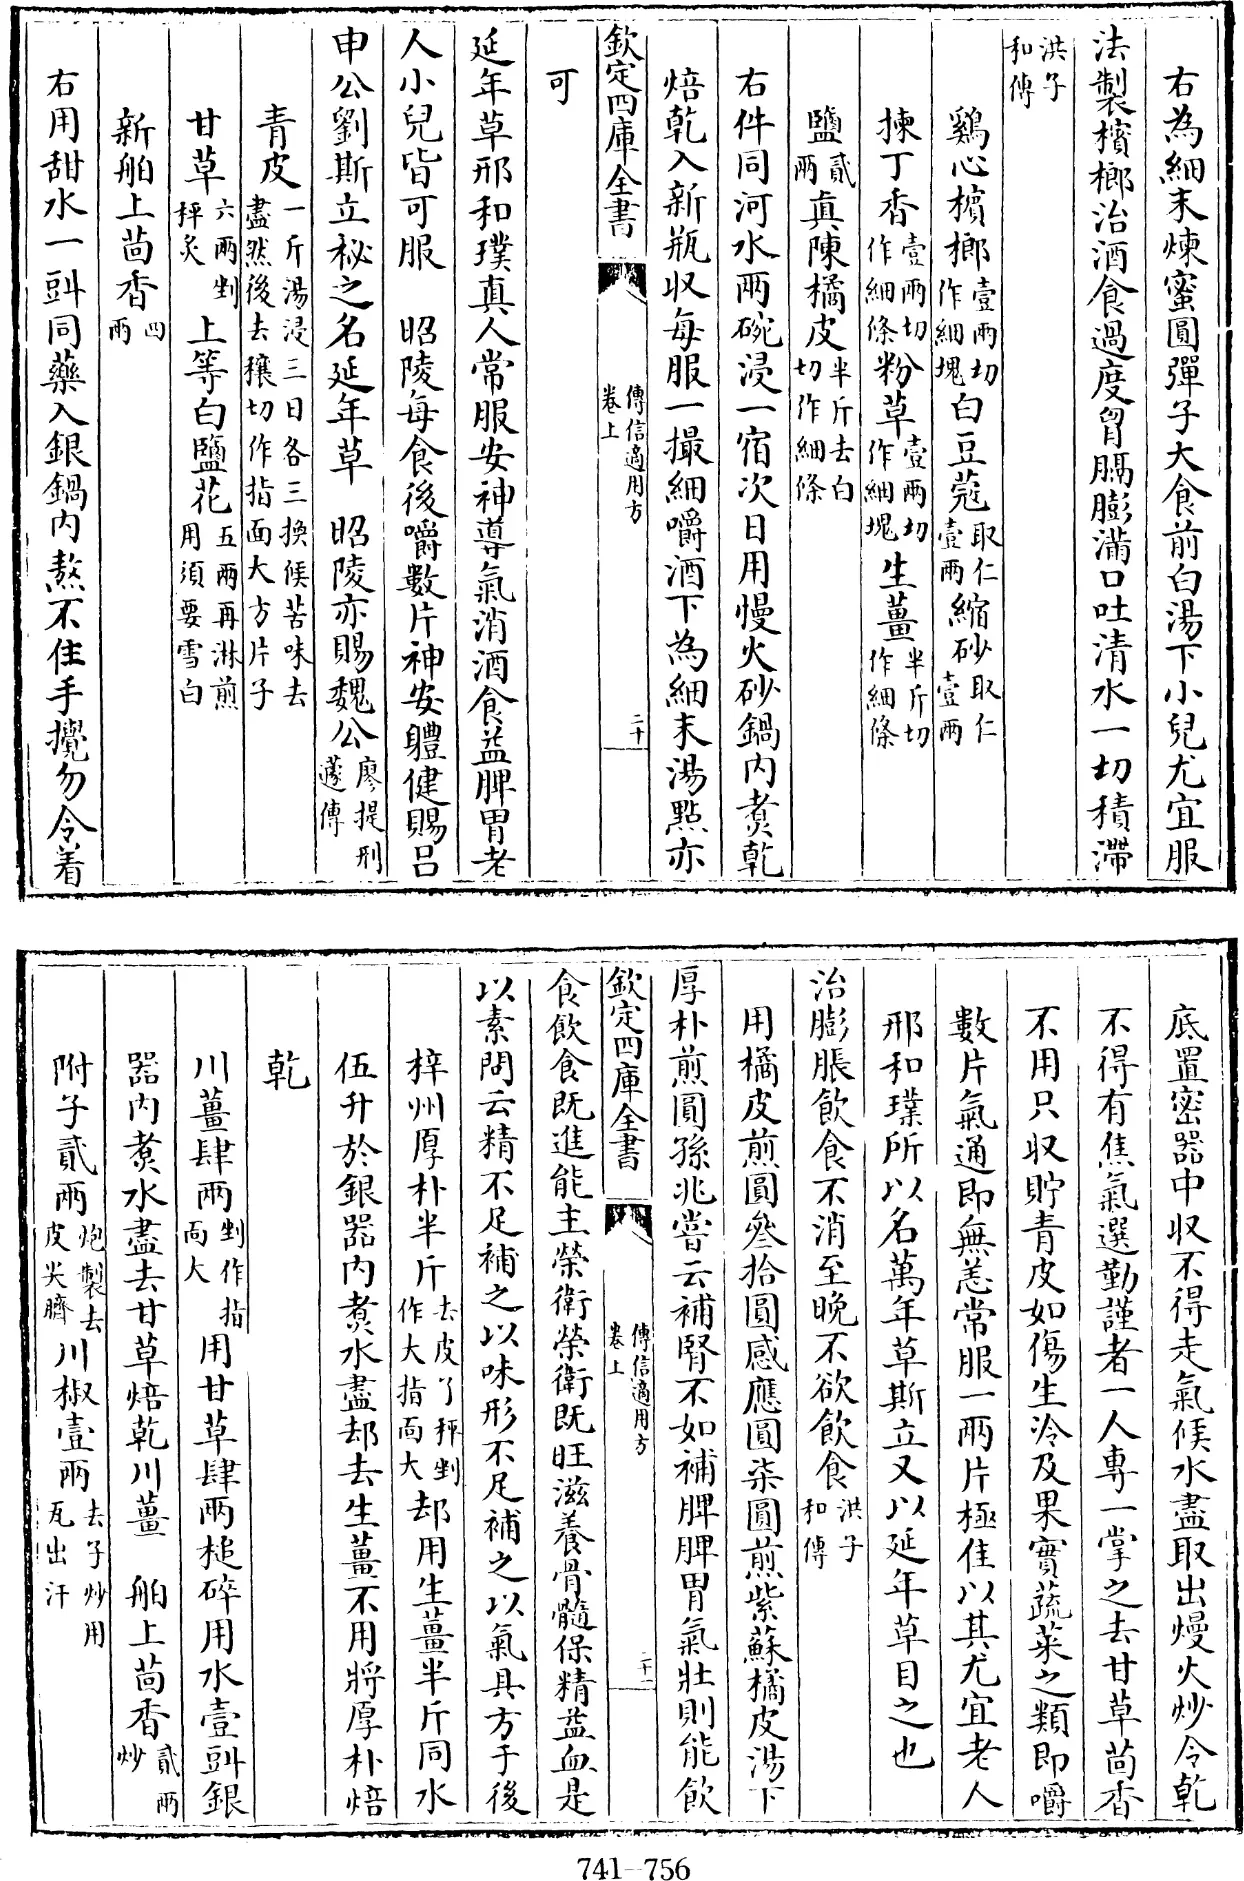 右為細末煉蜜圓彈子大食前白湯下小兒尤宜服
法製檳榔治酒食過度胷膈膨滿口吐清水一切積滯
洪子
和傳
鷄心檳榔壹兩切作細塊白豆蔲取仁壹兩縮砂取仁壹兩
揀丁香壹兩切作細條粉草壹兩切作細塊生薑半斤切作細條
鹽貳兩真陳橘皮半斤去白切作細條
右件同河水兩碗浸一宿次日用慢火砂鍋内煑乾
焙乾入新瓶收每服一撮細嚼酒下為細末湯點亦
欽定四庫全書
傳信適用方
卷上
二十
可
延年草邢和璞真人常服安神導氣消酒食益脾胃老
人小兒皆可服 昭陵每食後嚼數片神安體健賜吕
申公劉斯立秘之名延年草 昭陵亦賜魏公廖提刑蘧傳
青皮一斤湯浸三日各三換候苦味去盡然後去穰切作指面大方片子
甘草六兩剉秤炙 上等白鹽花五兩再淋煎用須要雪白
新舶上茴香四兩
右用甜水一㪷同藥入銀鍋内熬不住手攪勿令着
底置密器中收不得走氣候水盡取出熳火炒令乾
不得有焦氣選勤謹者一人專一掌之去甘草茴香
不用只收貯青皮如傷生冷及果實蔬菜之類即嚼
數片氣通即無恙常服一兩片極佳以其尤宜老人
邢和璞所以名萬年草斯立又以延年草目之也
治膨脹飲食不消至晚不欲飲食洪子和傳
用橘皮煎圓叄拾圓感應圓柒圓煎紫蘇橘皮湯下
厚朴煎圓孫兆嘗云補腎不如補脾脾胃氣壯則能飲
欽定四庫全書
傳信適用方
卷上
二十一
食飲食既進能主榮衛榮衛既旺滋養骨髓保精益血是
以素問云精不足補之以味形不足補之以氣具方于後
梓州厚朴半斤去皮了秤剉作大指面大却用生薑半斤同水
伍升於銀器内煑水盡却去生薑不用將厚朴焙
乾
川薑肆兩剉作指面大 用甘草肆兩槌碎用水壹㪷銀
器内煑水盡去甘草焙乾川薑 舶上茴香貳兩炒
附子貳兩炮製去皮尖臍川椒壹兩去子炒用瓦出汗
741-756